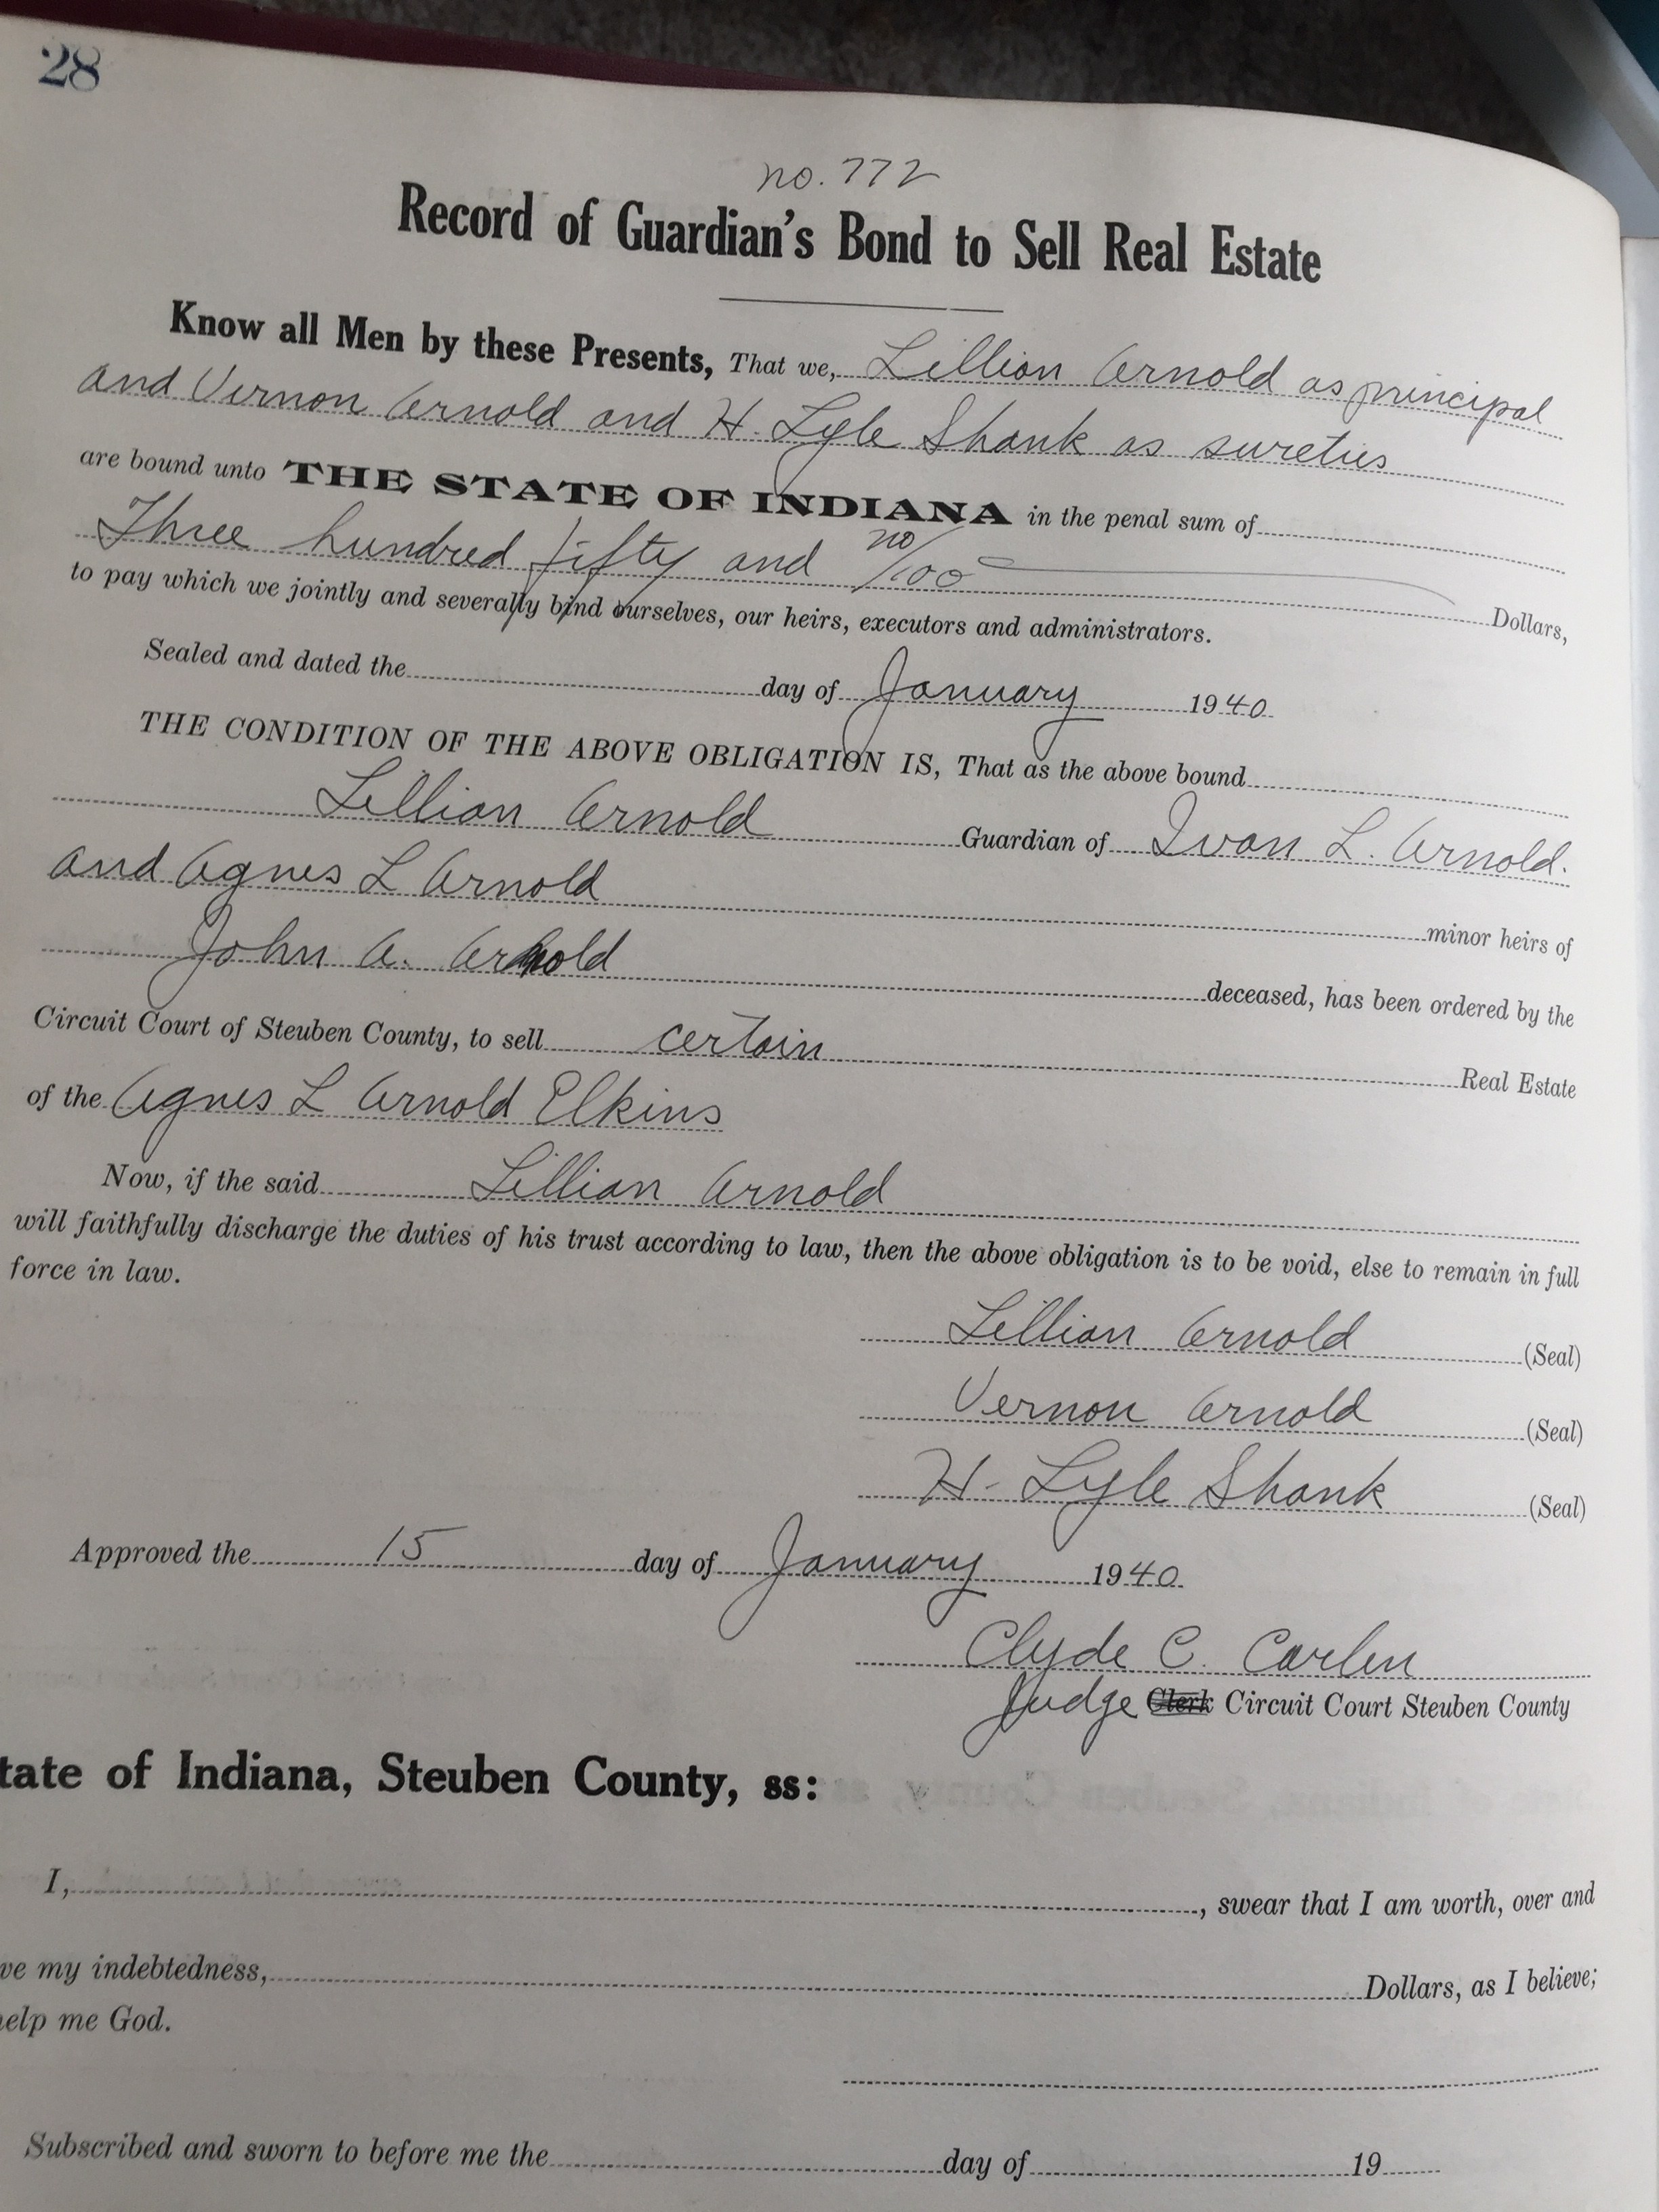 28
no. 772
Record of Guardian's Bond to Sell Real Estate
Know all Men by these Presents, That we, Lillian Arnold as principal
and Vernon Arnold and H. Lyle Shank as sureties
are bound unto THE STATE OF INDIANA in the penal sum of
Three hundred fifty and no/100 Dollars,
to pay which we jointly and severally bind ourselves, our heirs, executors and administrators.
Sealed and dated the day of January 1940
THE CONDITION OF THE ABOVE OBLIGATION IS, That as the above bound
Lillian Arnold Guardian of Ivan L. Arnold.
and Agnes L Arnold minor heirs of
John A. Arnold deceased, has been ordered by the
Circuit Court of Steuben County, to sell certain Real Estate
of the Agnes L Arnold Elkins
Now, if the said Lillian Arnold
will faithfully discharge the duties of his trust according to law, then the above obligation is to be void, else to remain in full
force in law.
Lillian Arnold (Seal)
Vernon Arnold (Seal)
H- Lyle Shank (Seal)
Approved the 15 day of January 1940
Clyde C. Carlin
Judge Clerk Circuit Court Steuben County
tate of Indiana, Steuben County, ss:
I, , swear that I am worth, over and
ve my indebtedness, Dollars, as I believe;
help me God.
Subscribed and sworn to before me the day of 19